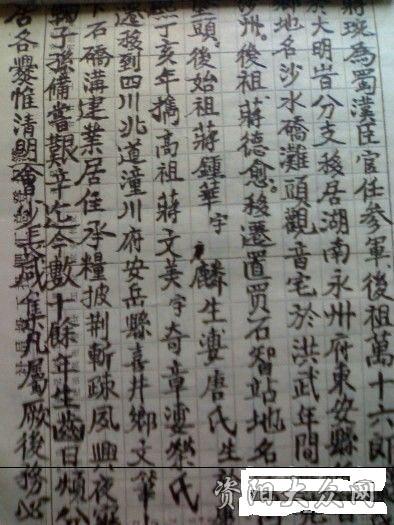 蔣琬為蜀漢臣官任参軍後祖萬十六郎
於大明時分支移居湖南永州府東安縣
鄉地名沙水橋灘頭觀音宅於洪武年間
沙州後祖蔣德愈移遷置買石智站地名
壘頭後始祖蔣鍾華字麟生妻唐氏生
丁亥年攜高祖蔣文美字奇章妻蔡氏
遷移到四川北道潼川府安岳縣喜井鄉文筆
下石橋溝建業居住承糧披荆斬疎夙興夜
子孫備嘗艱辛迄今數十餘年生齒日煩
居各爨惟清明會抄毛咸集凡屬厥後務必
资阳大众网